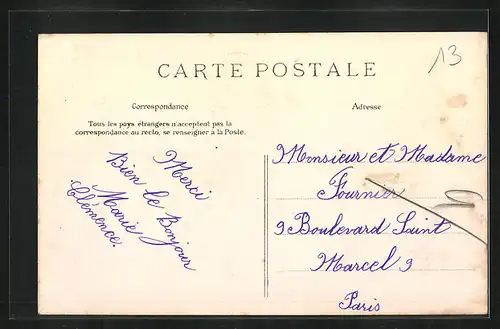 13
CARTE POSTALE
Correspondance
Tous les pays étrangers n'acceptent pas la
correspondance au recto, se renseigner à la Poste.
Merci
Bien le Bonjour
Marie
Clémence.
Adresse
Monsieur et Madame
Fournier
9 Boulevard Saint
Marcel 9
Paris